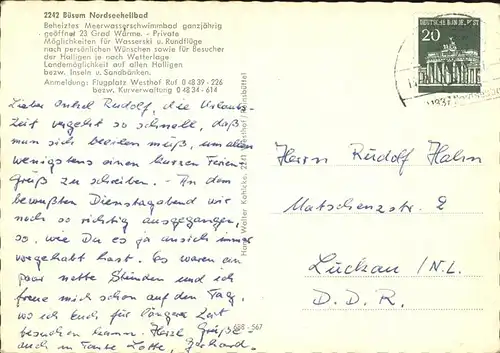 2242 Büsum Nordseeheilbad
Beheiztes Meerwasserschwimmbad ganzjährig
geöffnet 23 Grad Wärme. - Private
Möglichkeiten für Wasserski u. Rundflüge
nach persönlichen Wünschen sowie für Besucher
der Halligen je nach Wetterlage
Landemöglichkeit auf allen Halligen
bezw. Inseln u. Sandbänken.
Anmeldung: Flugplatz Westhof Ruf 0 48 39 - 226
bezw. Kurverwaltung 0 48 34 - 614
Lieber Onkel Rudolf, die Urlaubs-
zeit vergeht so schnell, daß
man sich beeilen muß, um allen
wenigstens einen kurzen Ferien-
Gruß zu schreiben. - An dem
bewußten Dienstagabend wir
noch so richtig ausgegangen,
so, wie Du es ja an sich immer
vorgehabt hast. Es waren ein
paar nette Stunden und ich
freue mich schon auf den Tag,
wo ich Euch für längere Zeit
besuchen kann. Herzl. Grüße
auch an Tante Lotte, Gerhard.
Hans Walter Kahlcke, 2241 Westhof /
567
DEUTSCHE BUNDESPOST
20
Herrn Rudolf Hahn
Matschenzstr. 2
Luckau / N.L.
D. D. R.